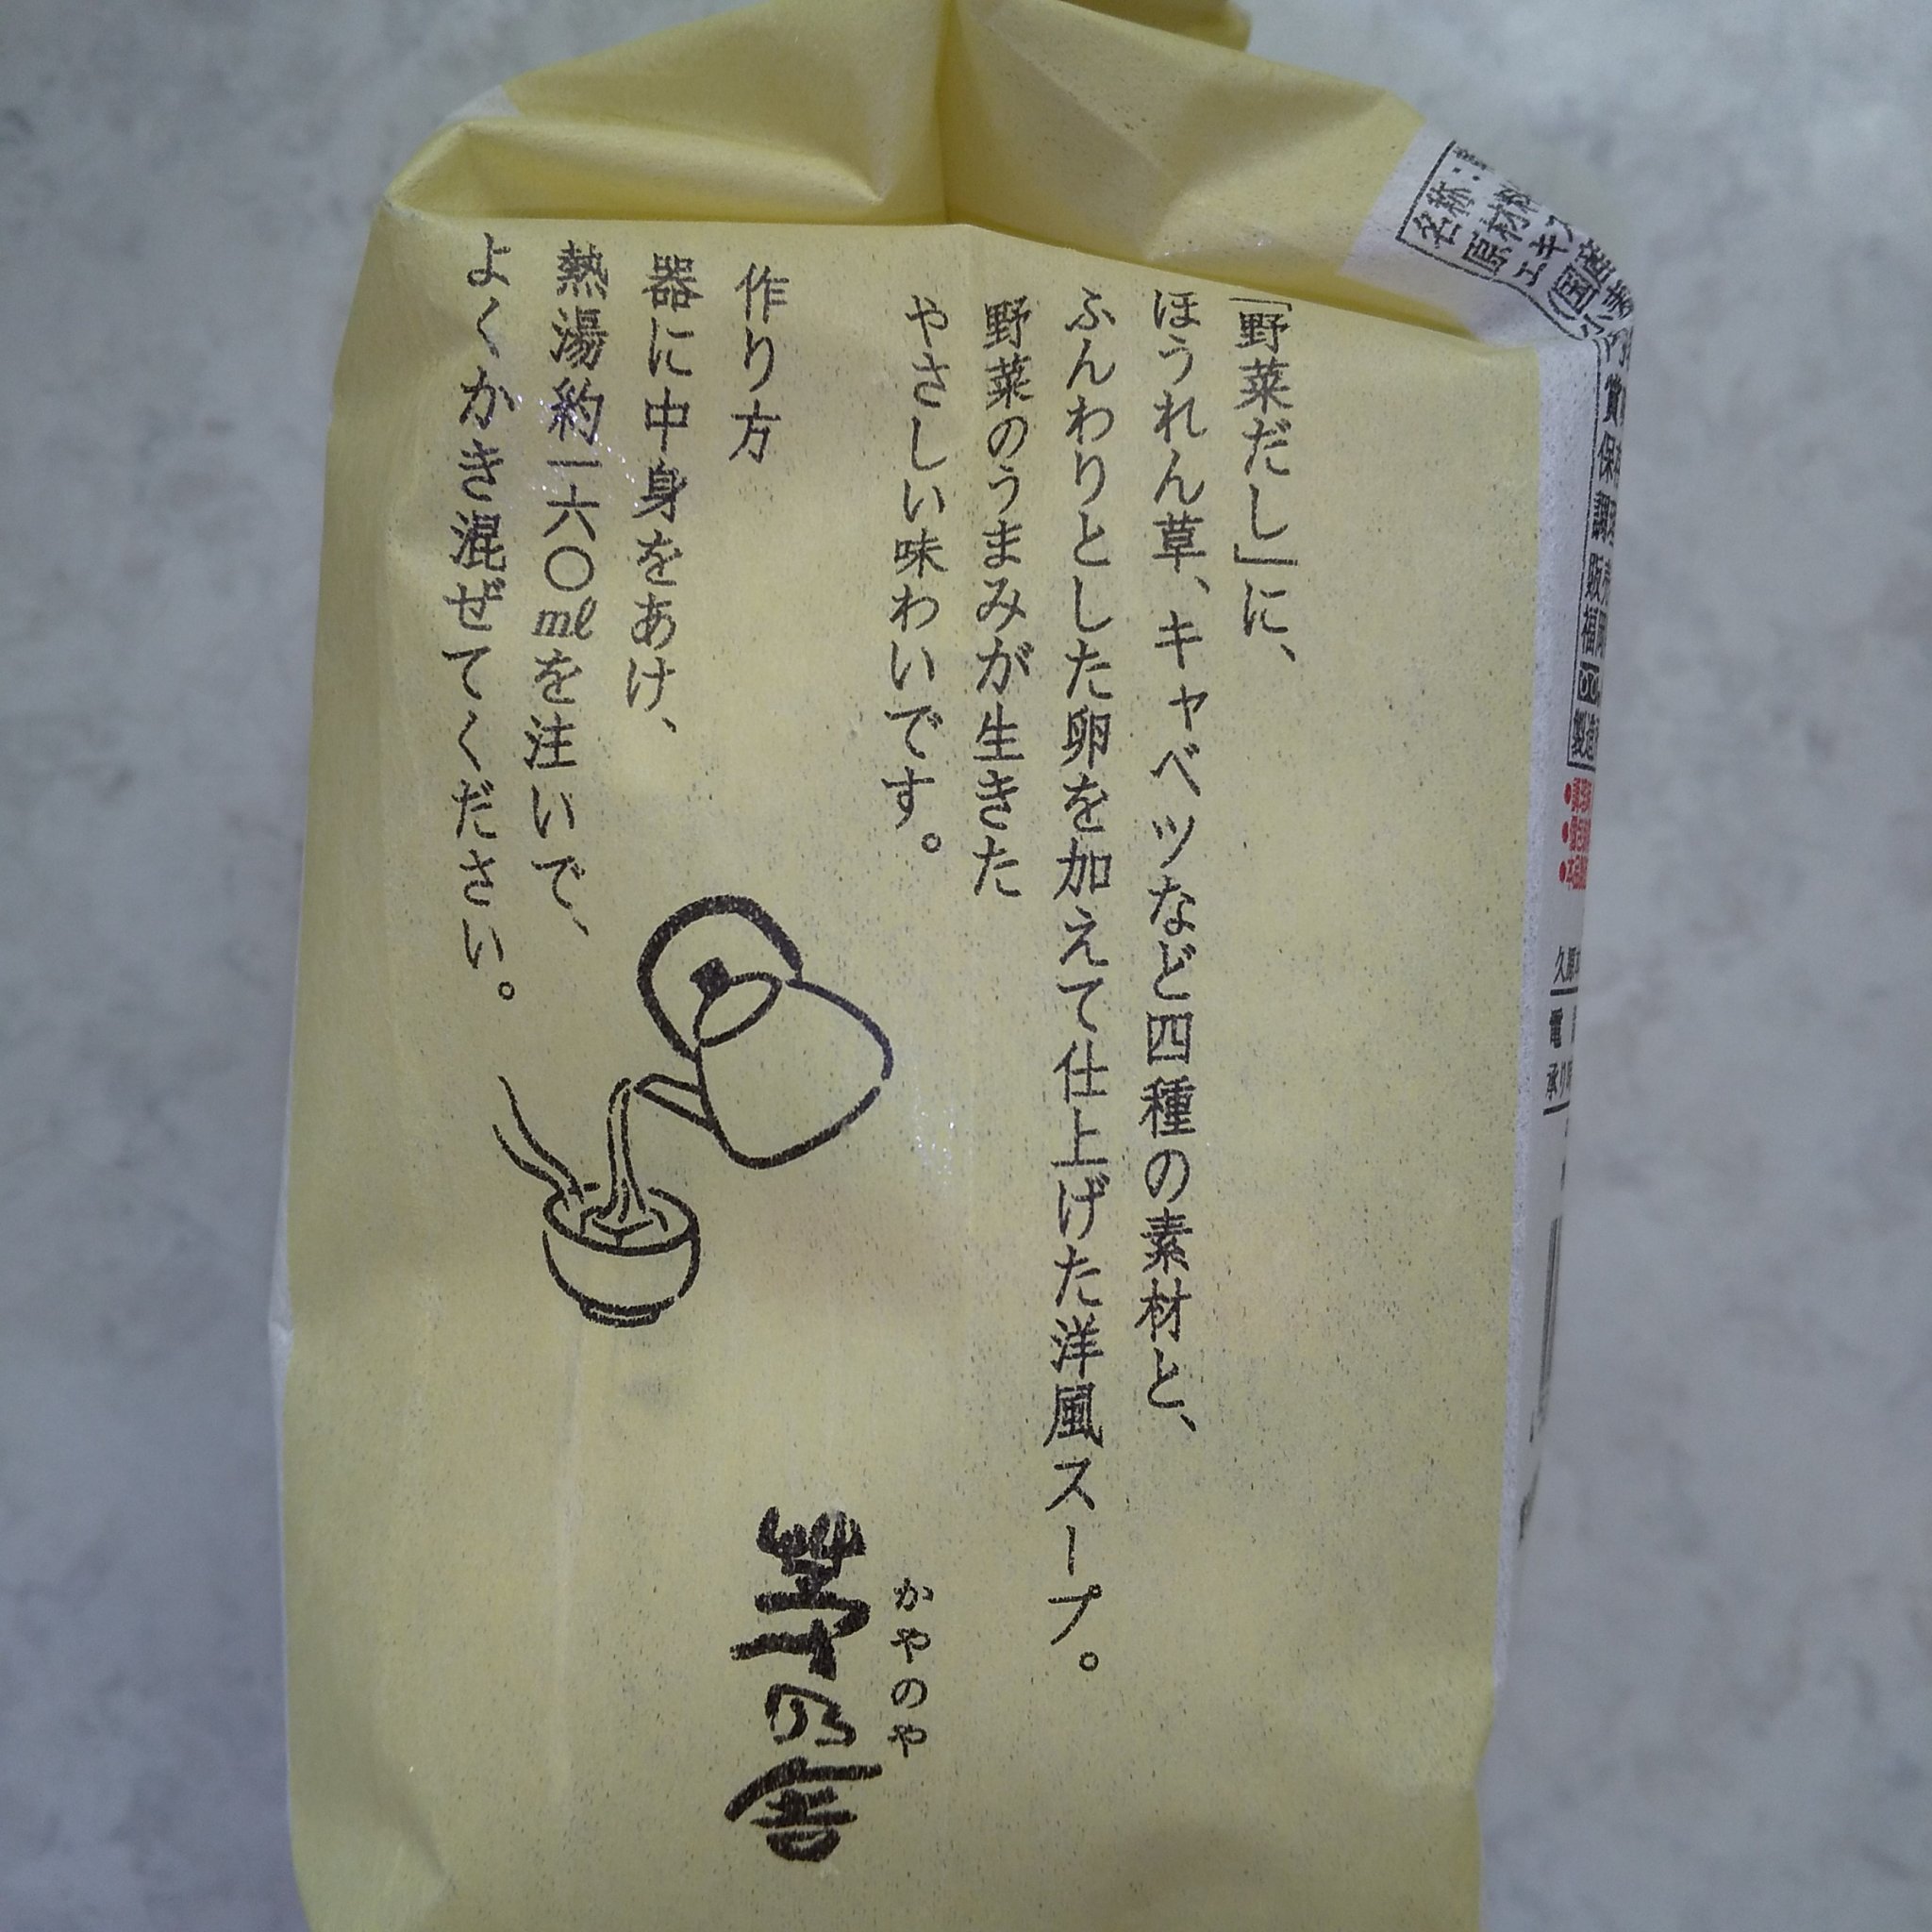 「野菜だし」に、
ほうれん草、キャベツなど四種の素材と、
ふんわりとした卵を加えて仕上げた洋風スープ。
野菜のうまみが生きた
やさしい味わいです。
作り方
器に中身をあけ、
熱湯約一六〇mlを注いで、
よくかき混ぜてください。
かやのや
茅乃舎
名称:
原材料
エキス
(国産